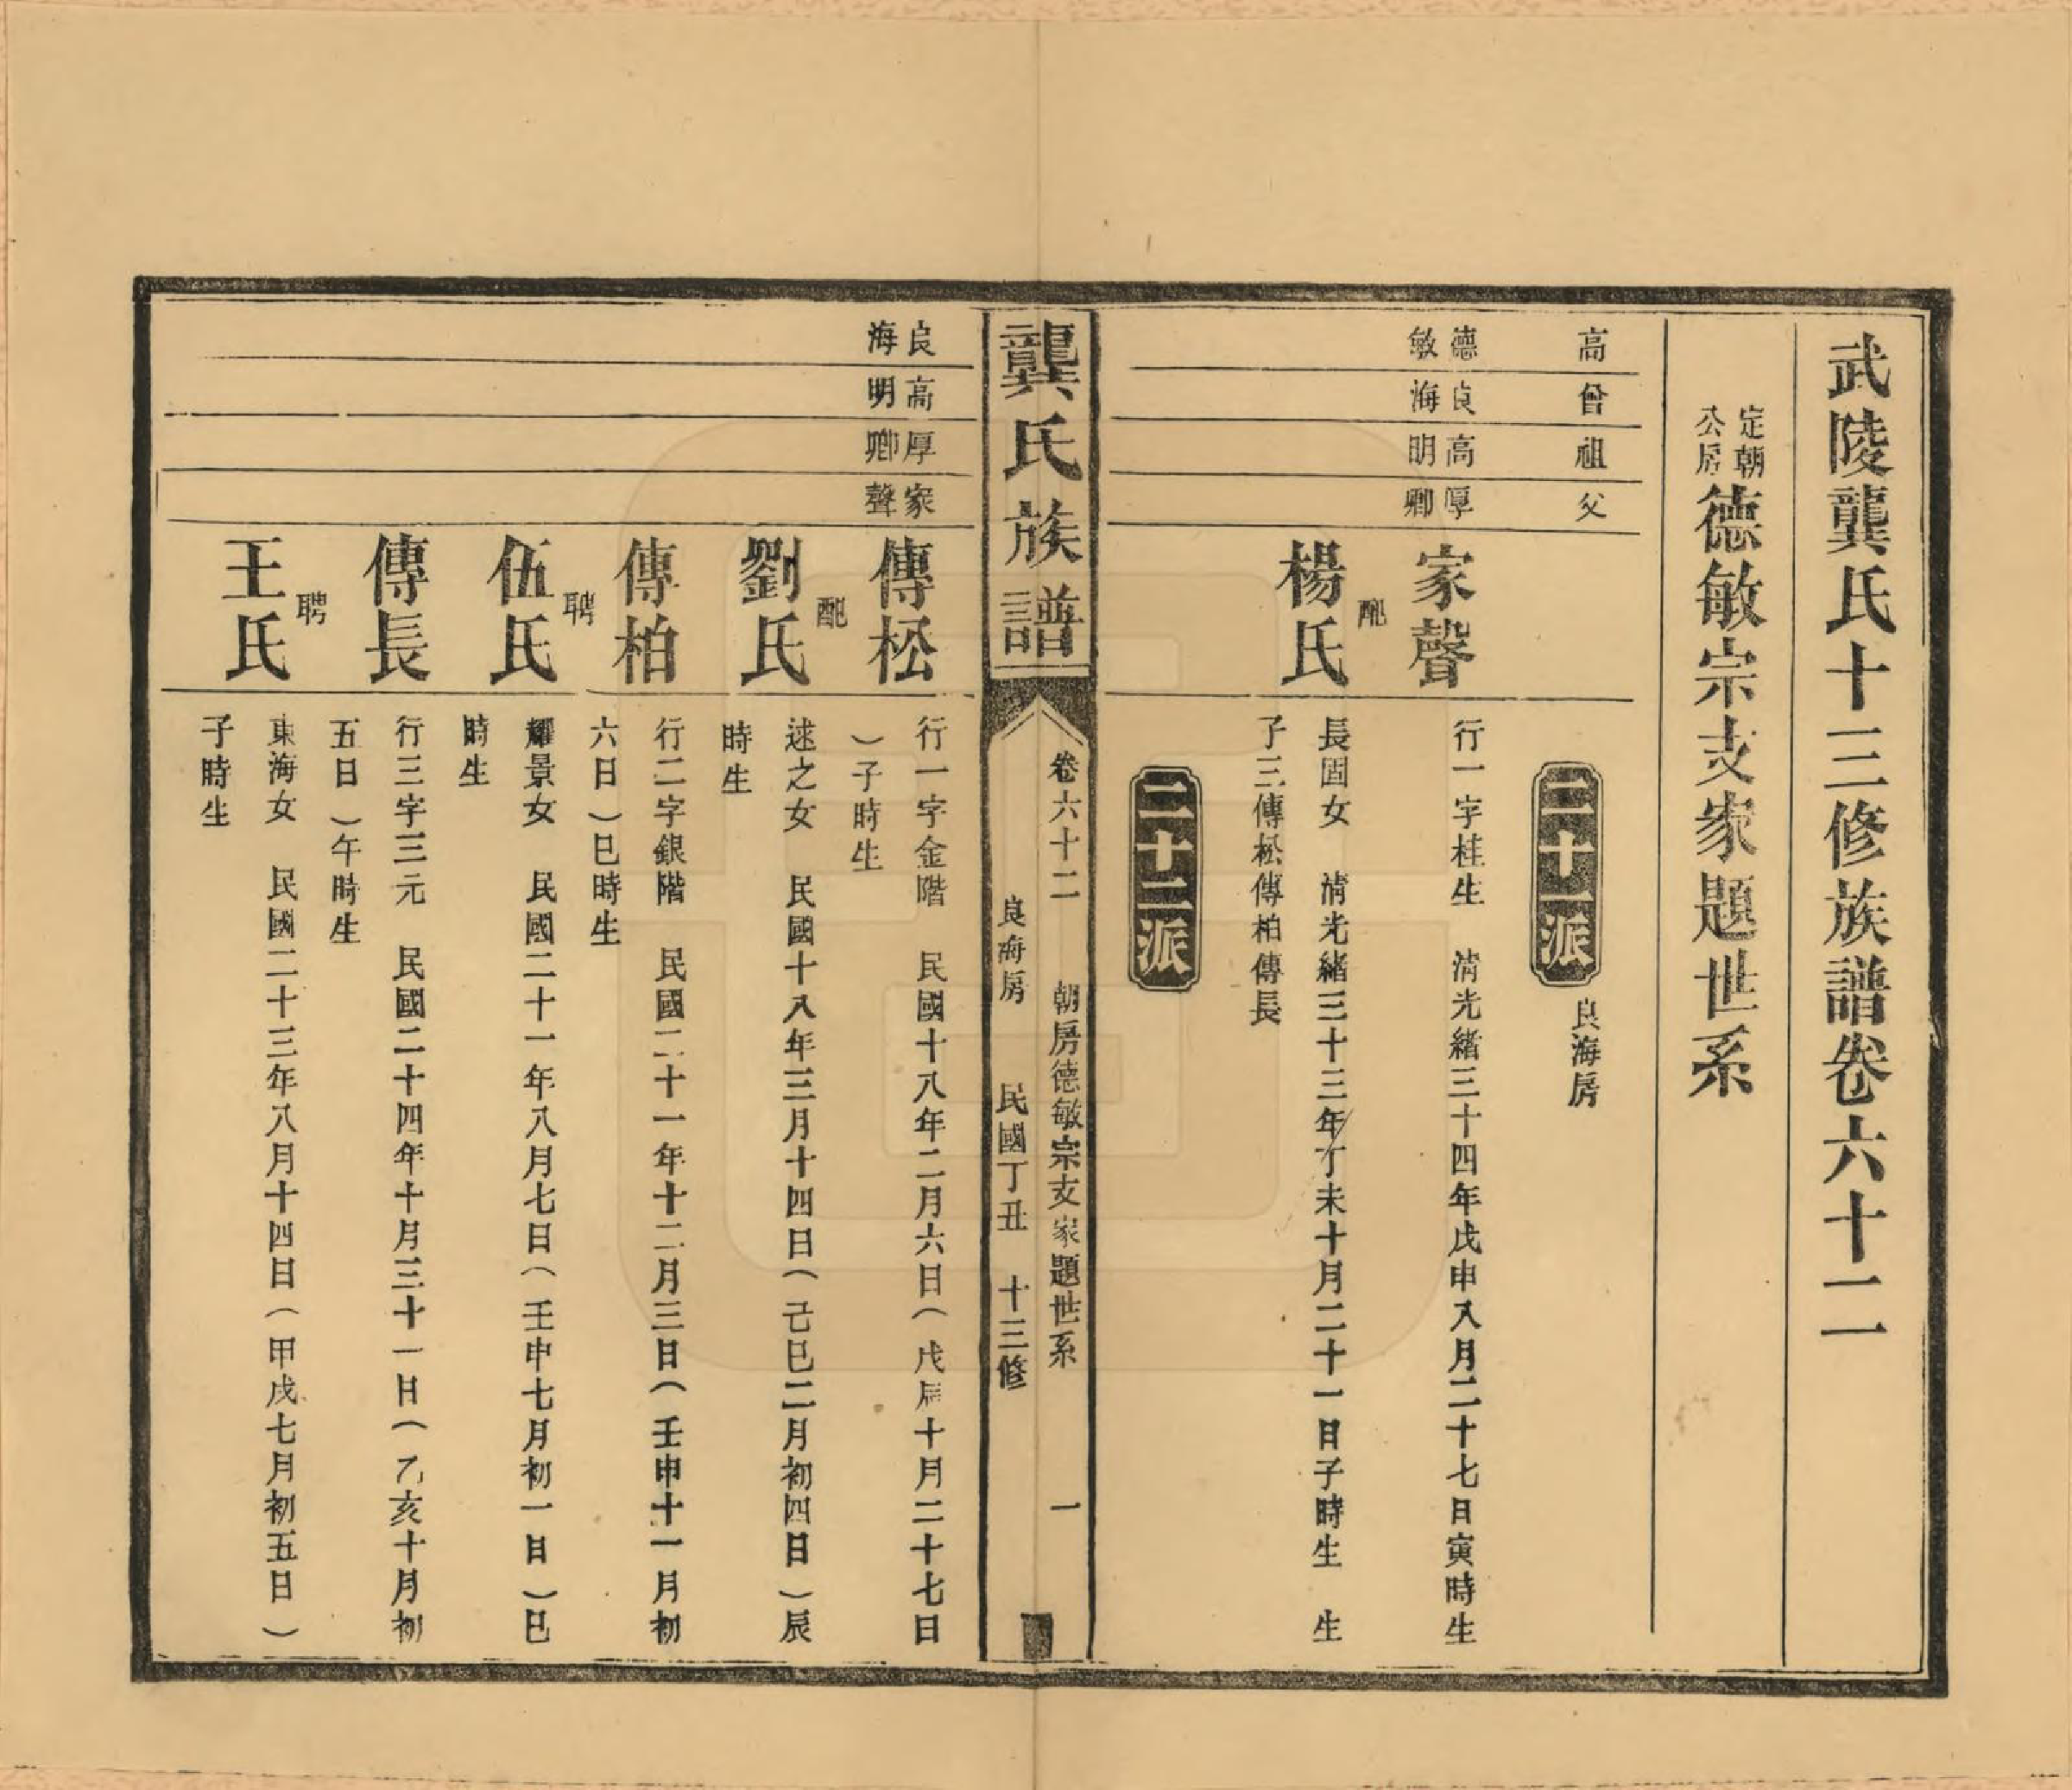 武陵龔氏十三修族譜卷六十二
定朝公房德敏宗支家題世系
高
曾
祖
父
三十一派
良海房
德敏
良海
高明
厚卿
家聲
行一字桂生 清光緒三十四年戊申八月二十七日寅時生
配
楊氏
長固女 清光緒三十三年丁未十月二十一日子時生 生
子三傳松傳柏傳長
三十二派
龔氏族譜
卷六十二 朝房德敏宗支家題世系 一
良海房 民國丁丑 十三修
良海
高明
厚卿
家聲
傳松
行一字金階 民國十八年二月六日(戊辰十月二十七日
)子時生
配
劉氏
述之女 民國十八年三月十四日(己巳二月初四日)辰
時生
傳柏
行二字銀階 民國二十一年十二月三日(壬申十一月初
六日)巳時生
聘
伍氏
耀景女 民國二十一年八月七日(壬申七月初一日)巳
時生
傳長
行三字三元 民國二十四年十月三十一日(乙亥十月初
五日)午時生
聘
王氏
東海女 民國二十三年八月十四日(甲戌七月初五日)
子時生